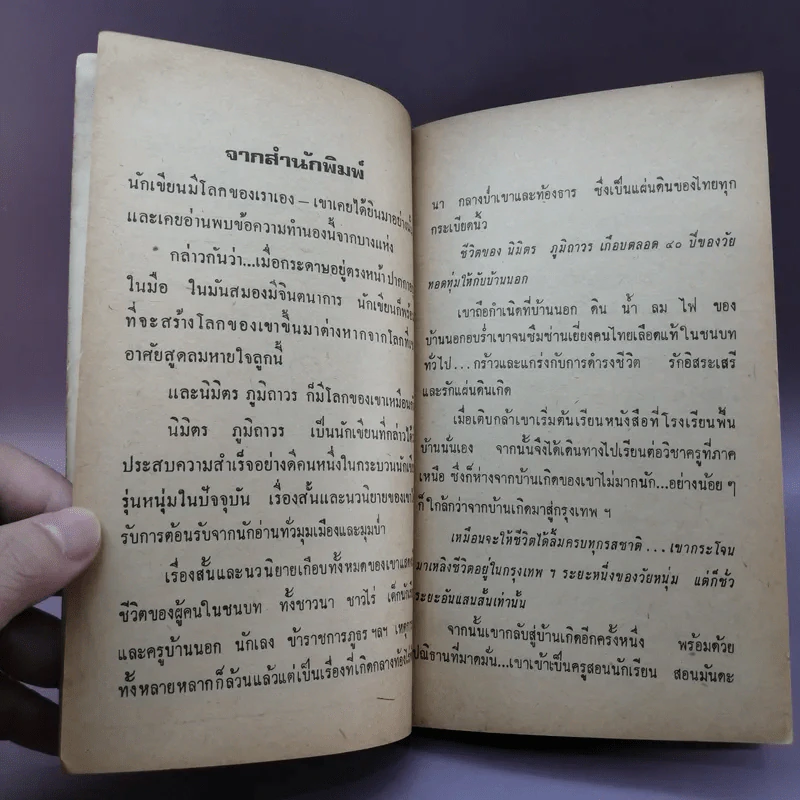 จากสำนักพิมพ์
นักเขียนมีโลกของเราเอง — เขาเคยได้ยินมาอย่างนั้น
และเคยอ่านพบข้อความทำนองนี้จากบางแห่ง
กล่าวกันว่า...เมื่อกระดาษอยู่ตรงหน้า
ในมือ ในมันสมองมีจินตนาการ นักเขียนก็
ที่จะสร้างโลกของเขาขึ้นมาต่างหากจากโลก
อาศัยสูดลมหายใจลูกนี้
และนิมิตร ภูมิถาวร ก็มีโลกของเขาเหมือน
นิมิตร ภูมิถาวร เป็นนักเขียนที่กล่าวได้
ประสบความสำเร็จอย่างดีคนหนึ่งในกระบวน
รุ่นหนุ่มในปัจจุบัน เรื่องสั้นและนวนิยายของเขา
รับการต้อนรับจากนักอ่านทั่วมุมเมืองและมุมป่า
เรื่องสั้นและนวนิยายเกือบทั้งหมดของเขา
ชีวิตของผู้คนในชนบท ทั้งชาวนา ชาวไร่
และครูบ้านนอก นักเลง ข้าราชการภูธร ฯลฯ
ทั้งหลายหลากก็ล้วนแล้วแต่เป็นเรื่องที่เกิดกลาง
นา กลางป่าเขาและท้องธาร ซึ่งเป็นแผ่นดินของไทยทุก
กระเบียดนิ้ว
ชีวิตของ นิมิตร ภูมิถาวร เกือบตลอด ๔๐ ปีของวัย
ทอดทุ่มให้กับบ้านนอก
เขาถือกำเนิดที่บ้านนอก ดิน น้ำ ลม ไฟ ของ
บ้านนอกอบร่ำเขาจนซึมซ่านเยี่ยงคนไทยเลือดแท้ในชนบท
ทั่วไป...กร้าวและแกร่งกับการดำรงชีวิต รักอิสระเสรี
และรักแผ่นดินเกิด
เมื่อเติบกล้าเขาเริ่มต้นเรียนหนังสือที่โรงเรียนพื้น
บ้านนั่นเอง จากนั้นจึงได้เดินทางไปเรียนต่อวิชาครูที่ภาค
เหนือ ซึ่งก็ห่างจากบ้านเกิดของเขาไม่มากนัก...อย่างน้อย ๆ
ก็ใกล้กว่าจากบ้านเกิดมาสู่กรุงเทพ ฯ
เหมือนจะให้ชีวิตได้ลิ้มครบทุกรสชาติ...เขากระโจน
มาเหลิงชีวิตอยู่ในกรุงเทพ ฯ ระยะหนึ่งของวัยหนุ่ม แต่ก็ชั่ว
ระยะอันแสนสั้นเท่านั้น
จากนั้นเขากลับสู่บ้านเกิดอีกครั้งหนึ่ง พร้อมด้วย
ปณิธานที่มาดมั่น...เขาเข้าเป็นครูสอนนักเรียน สอนมันดะ